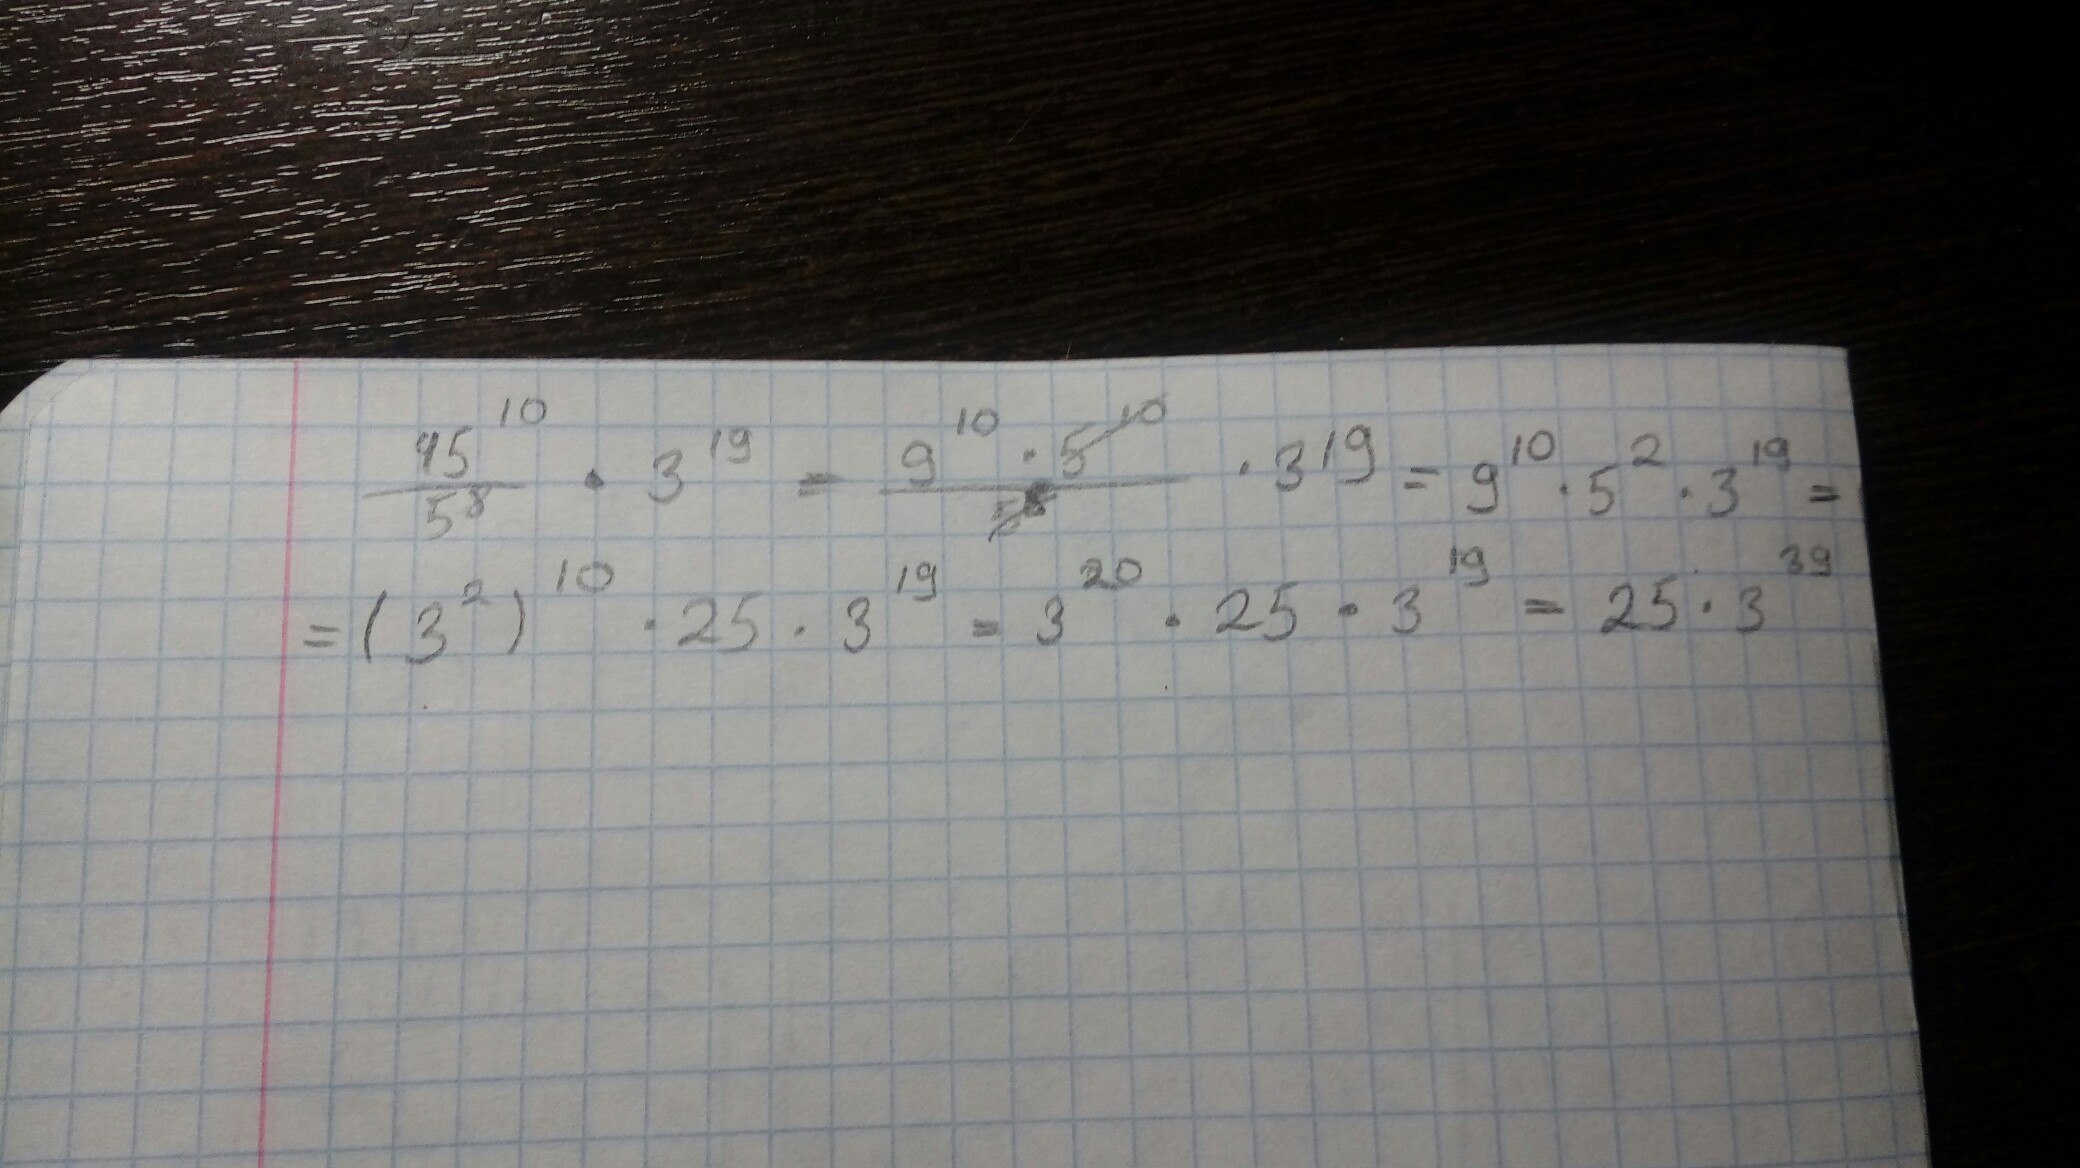 45^10/5^8 · 3^19 = 9^10 · 5^10/5^8 · 3^19 = 9^10 · 5^2 · 3^19 =
= (3^2)^10 · 25 · 3^19 = 3^20 · 25 · 3^19 = 25 · 3^39